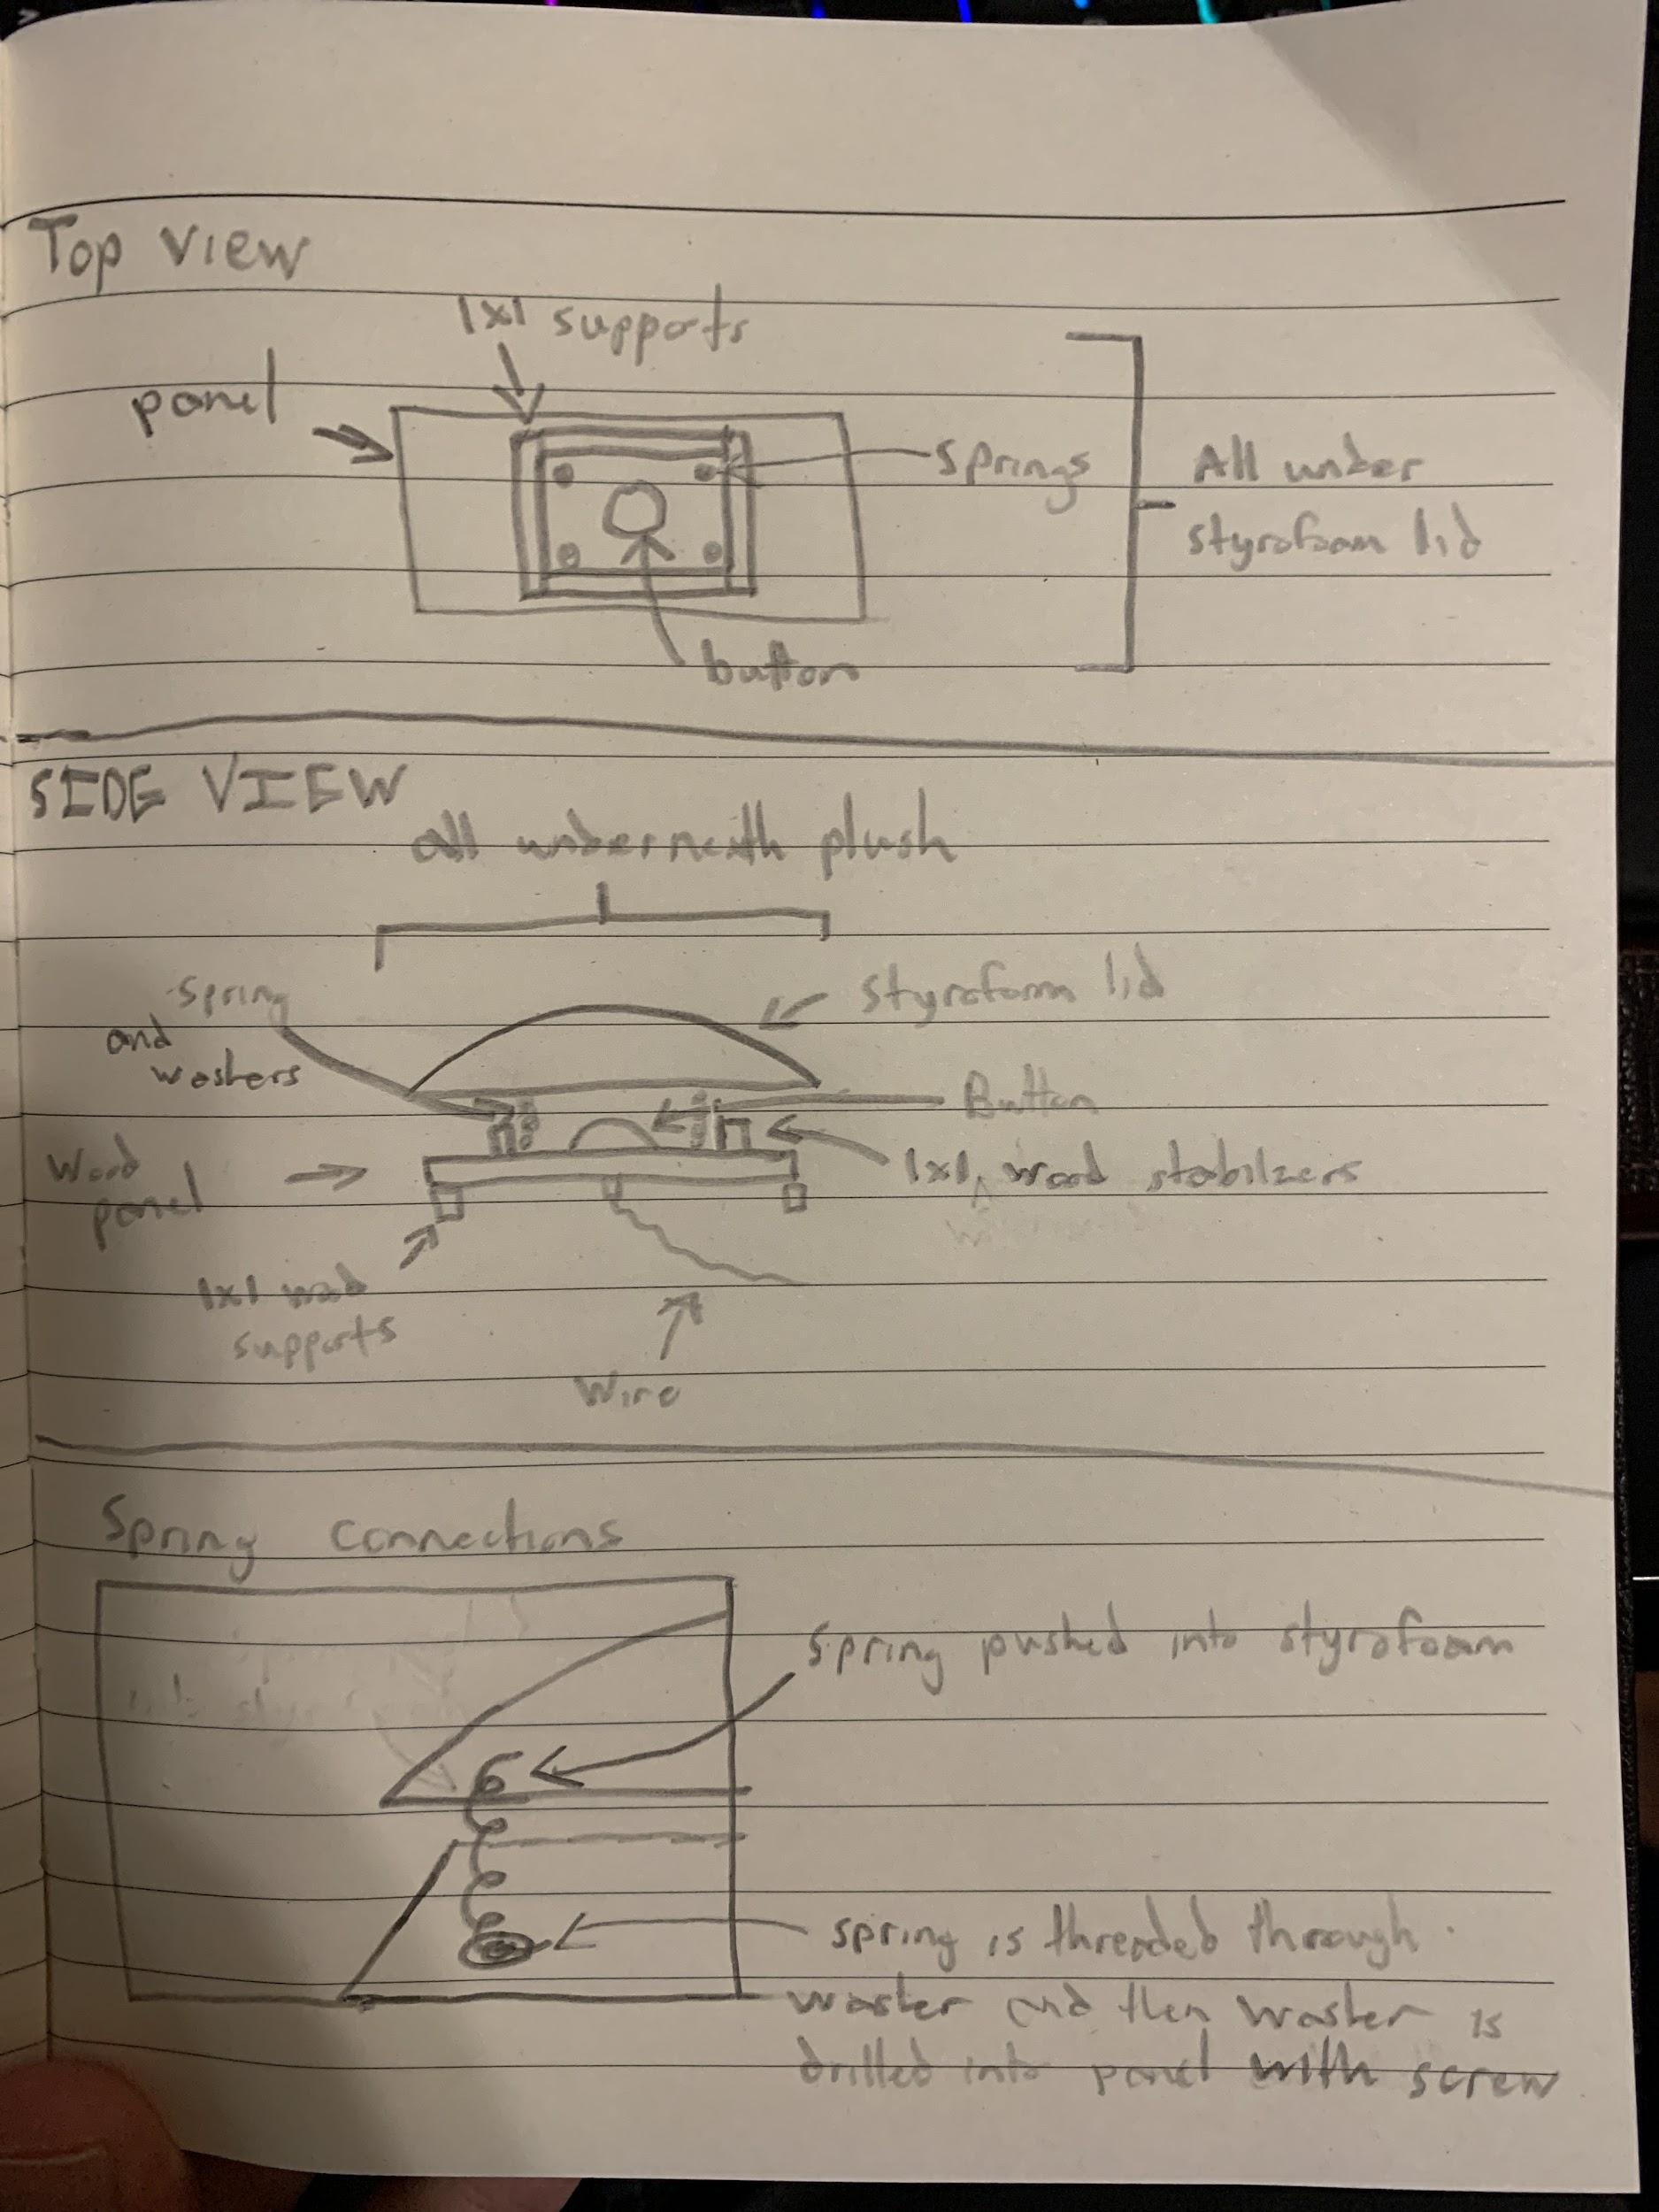 Top View
1x1 supports
panel
springs
All under
styrofoam lid
button
SIDE VIEW
all underneath plush
spring
and
washers
Styrofoam lid
Button
Wood
panel
1x1 wood stabilzers
1x1 wood
supports
Wire
Spring Connections
Spring pushed into styrofoam
spring is threaded through
washer and then washer is
drilled into panel with screw